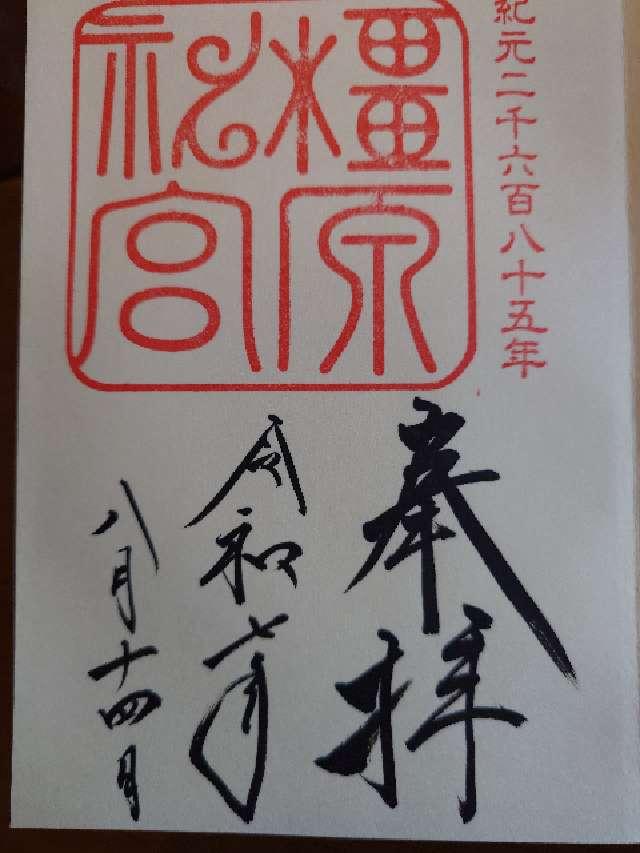 紀元二千六百八十五年
橿原
神宮
奉拝
令和七年
八月十四日